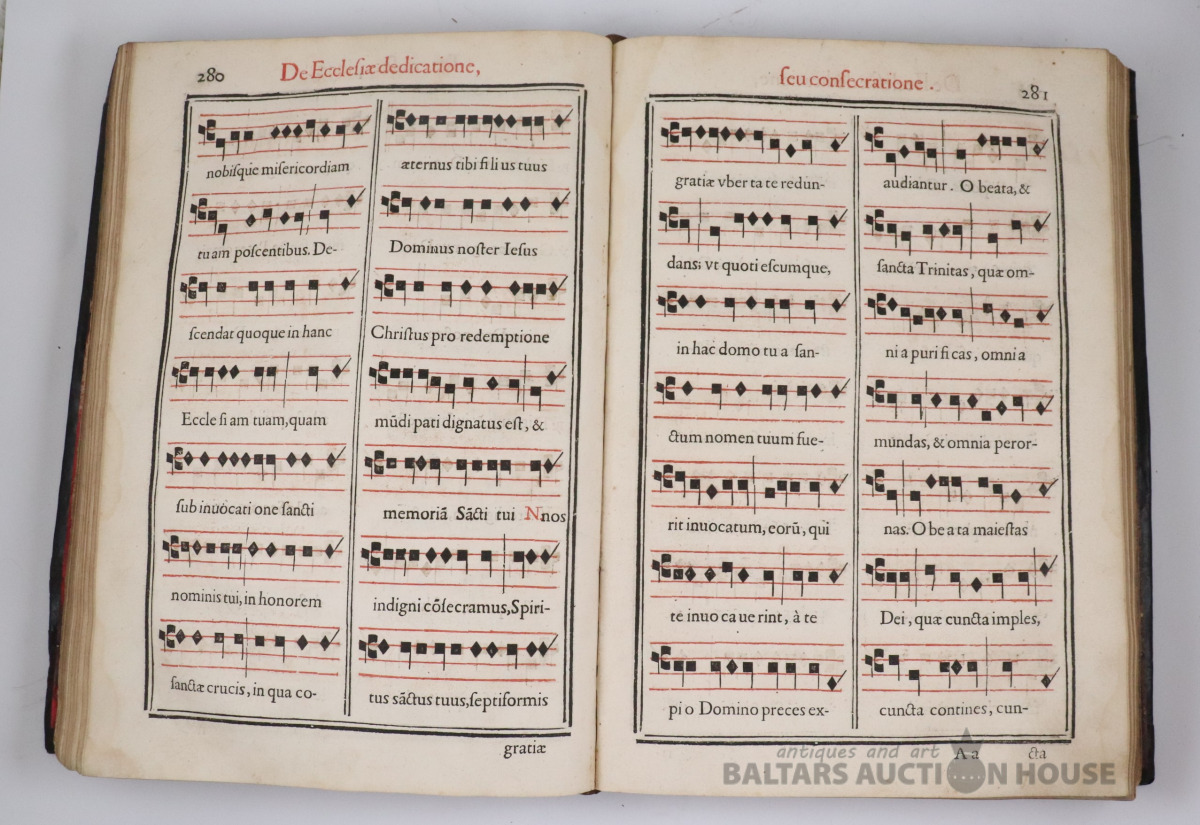 280
De Ecclesiæ dedicatione,
nobisque misericordiam
tu am poscentibus. De-
scendat quoque in hanc
Eccle si am tuam, quam
sub inuocati one sancti
nominis tui, in honorem
sanctæ crucis, in qua co-
æternus tibi fi li us tuus
Dominus noster Iesus
Christus pro redemptione
mūdi pati dignatus est, &
memoriā Sācti tui N. nos
indigni cōsecramus, Spiri-
tus sāctus tuus, septiformis
gratiæ
seu consecratione.
281
gratiæ vber ta te redun-
dans; vt quoti escumque,
in hac domo tu a san-
ctum nomen tuum fue-
rit inuocatum, eorū, qui
te inuo ca ue rint, à te
pi o Domino preces ex-
audiantur. O beata, &
sancta Trinitas, quæ om-
ni a puri fi cas, omni a
mundas, & omnia peror-
nas. O be a ta maiestas
Dei, quæ cuncta imples,
cuncta contines, cun-
A a
cta
antiques and art
BALTARS AUCTION HOUSE